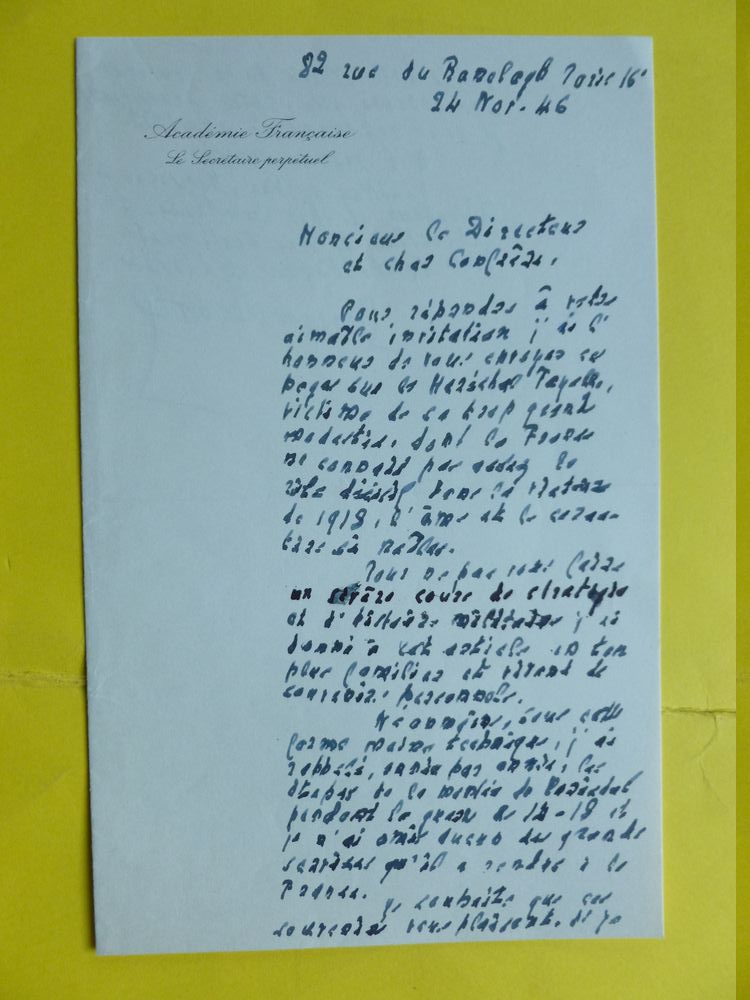 82 rue du Ranelagh Paris 16e
24 Nov. 46
Académie Française
Le Secrétaire perpétuel
Monsieur le Directeur
et cher Confrère,
Pour répondre à votre
aimable invitation j'ai l'
honneur de vous envoyer ces
pages sur le Maréchal Fayolle,
victime de sa trop grande
modestie, dont la France
ne connaît pas assez le
rôle décisif dans la victoire
de 1918, l'âme et le carac-
tère si nobles.
Pour ne pas vous faire
un sévère cours de stratégie
et d'histoire militaire j'ai
donné à cet article un ton
plus familier et vivant de
souvenirs personnels.
Néanmoins, sous cette
forme moins technique, j'ai
rappelé, année par année, les
étapes de la montée de
pendant la guerre de 14-18 et
je n'ai omis aucun des grands
services qu'il a rendus à la
France.
Je souhaite que ces
souvenirs vous plaisent. Si je